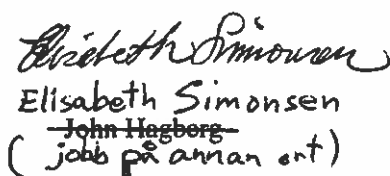 Elisabeth Simonsen
Elisabeth Simonsen
John Hagborg
(jobb på annan ort)